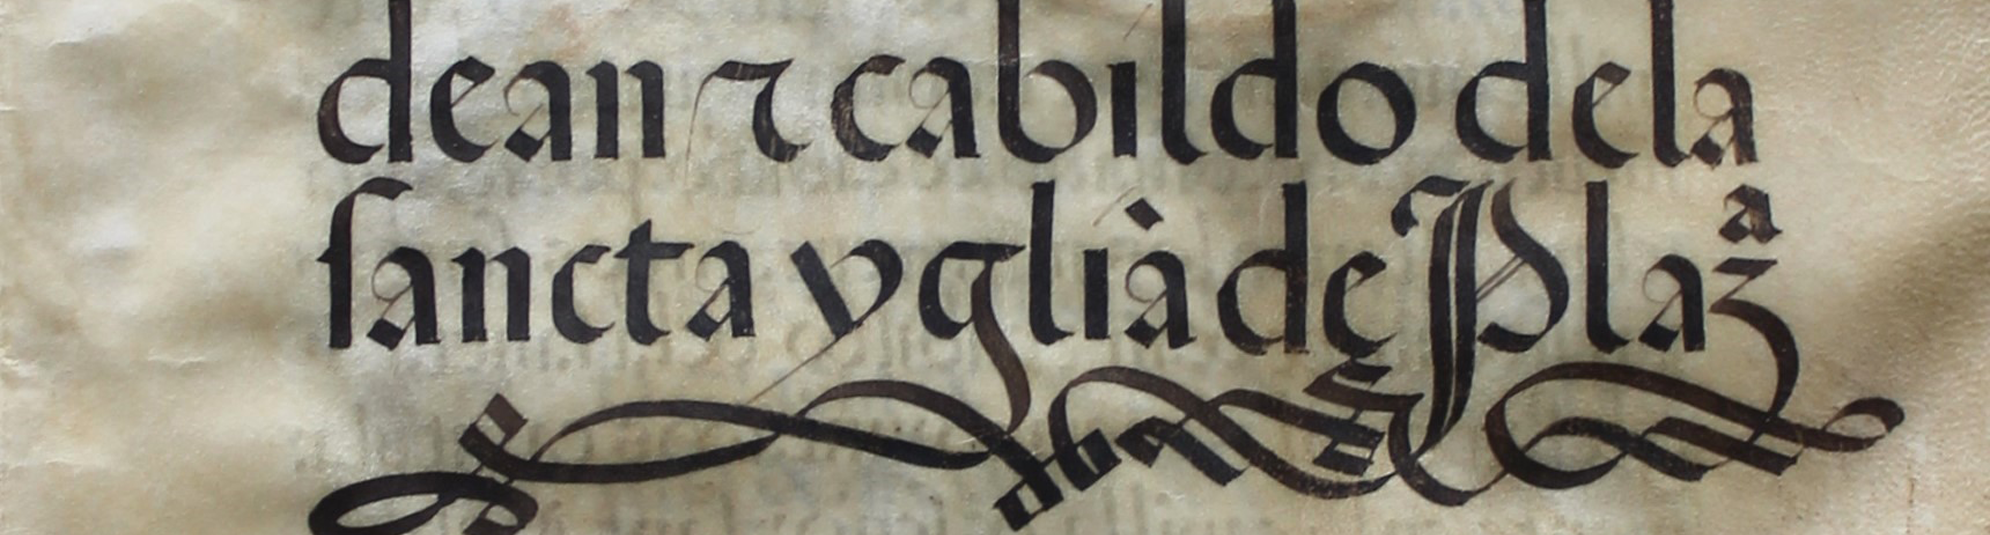 dean ⁊ cabildo dela
sancta yglia de Plazª